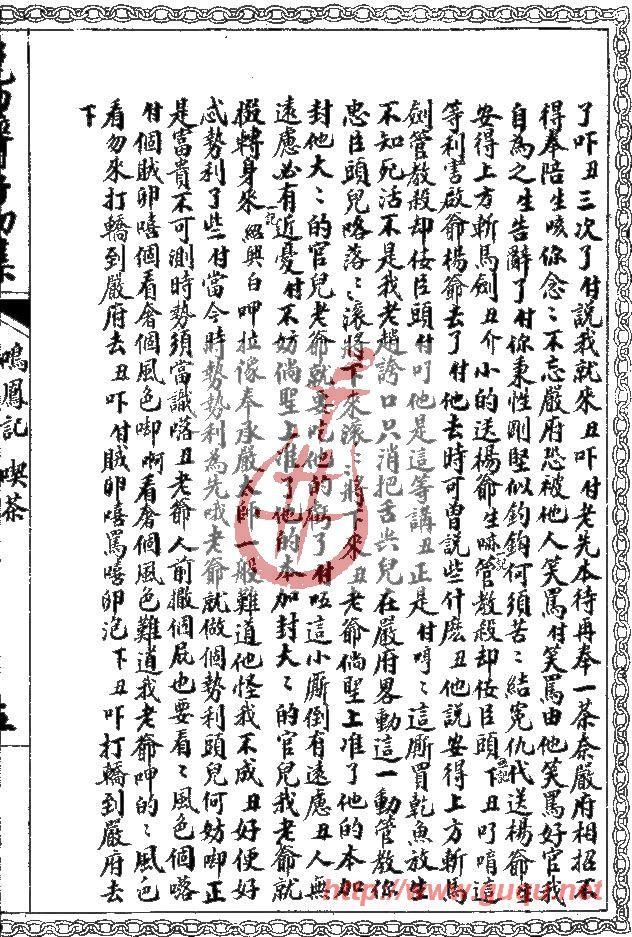 了吓丑三次了付説我就來丑吓付老先本待再奉一茶奈嚴府相招不
得奉陪生咳你念〻不忘嚴府恐被他人笑罵付笑罵由他笑罵好官我
自為之生告辭了付你秉性剛堅似鈎何須苦〻結寃仇代送楊爺生
安得上方斬馬劍丑介小的送楊爺生嘛管教殺却佞臣頭下丑叮唷這
等利害啟爺楊爺去了付他去時可曾説些什麽丑他説安得上方斬馬
劍管教殺却佞臣頭付叮他是這等講丑正是付哼〻這厮買乾魚放生
不知死活不是我老趙誇口只消把舌尖兒在嚴府畧動這一動管教你
忠臣頭兒咯落〻滾將下來滾〻將下來丑老爺倘聖上准了他的本加
封他大〻的官兒老爺就要吃他的虧了付呸這小厮倒有遠慮丑人無
遠慮必有近憂付不妨倘聖上准了他的本加封大〻的官兒我老爺就
掇轉身來紹興白呷拉像奉承嚴太師一般難道他怪我不成丑好便好
忒勢利了些付當今時勢勢利為先哦老爺就做個勢利頭兒何妨啣正
是富貴不可測時勢須當識咯丑老爺人前撒個屁也要看〻風色個咯
付個賊卵嘻個看奢個風色啣啊看奢個風色難道我老爺呻的〻風色
看勿來打轎到嚴府去丑吓付賊卵嘻罵嘻卵泡下丑吓打轎到嚴府去
下
鳴鳳記 喫茶
五
http://www.guqu.net